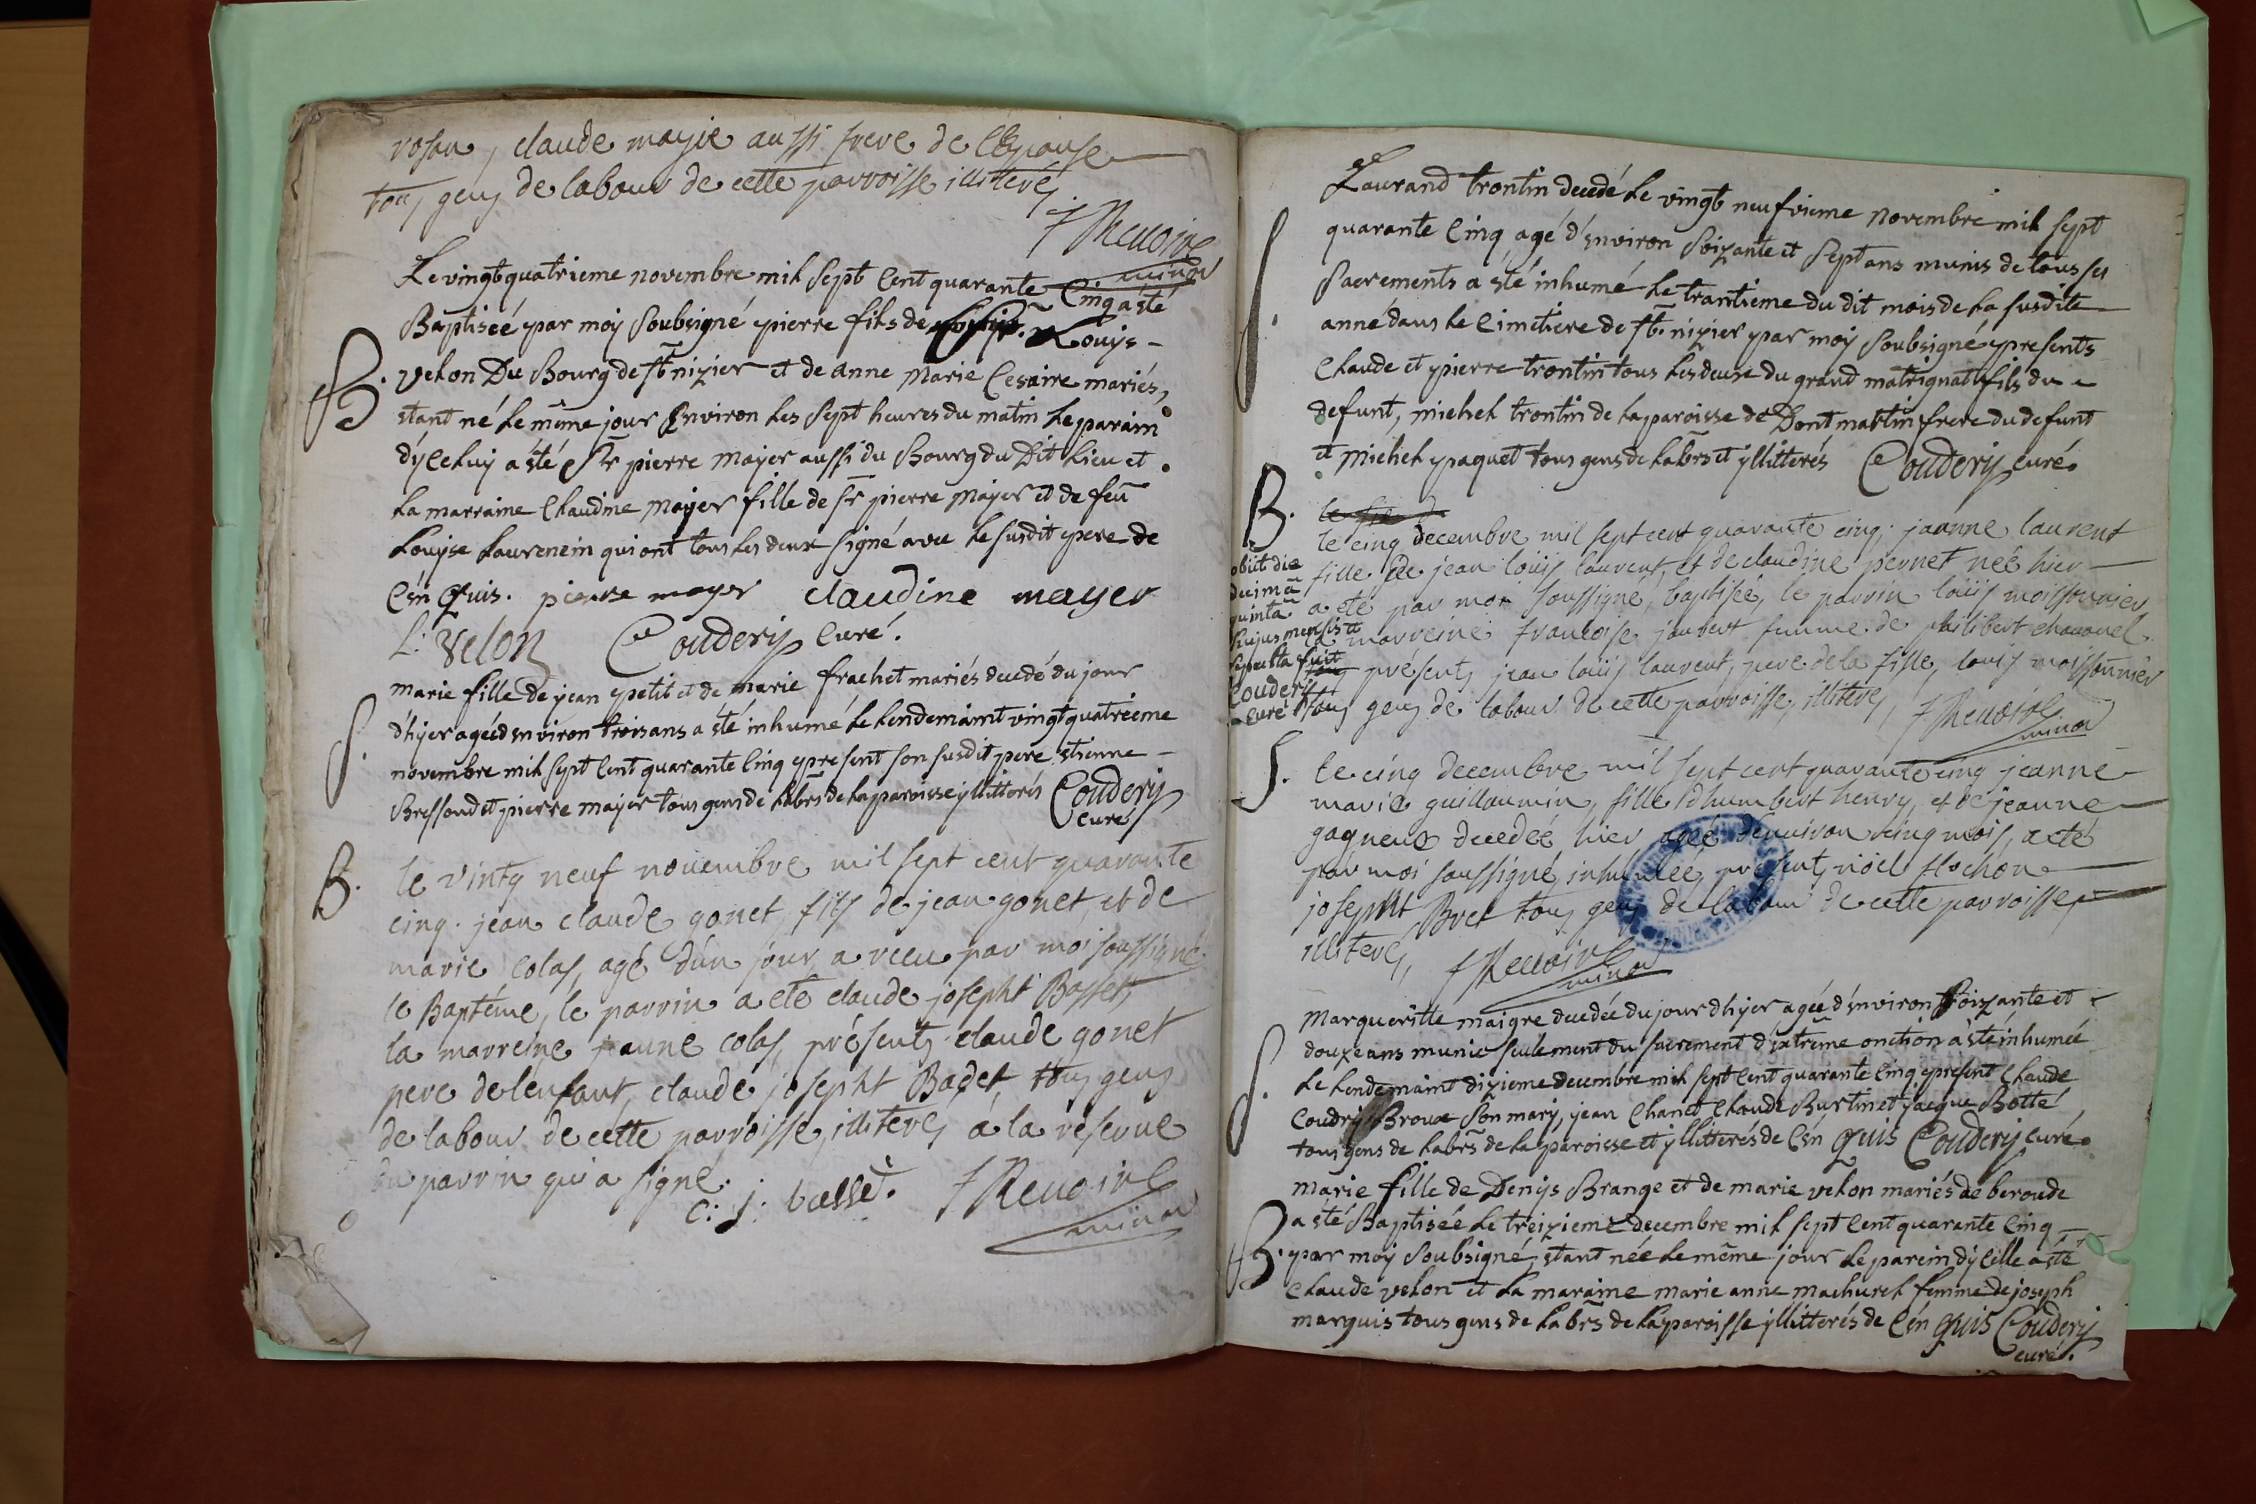 rosan, claude mayie aussi frere de lepouse
tous gens de labour de cette parroisse illiterés
f Renoire
minor
Le vingt quatrieme novembre mil sept cent quarante cinq a sté
B. Baptiseé par moy soubsigné pierre fils de Louys
velon Du Bourg de st nizier et de anne marie Cesaire mariés,
stant né le même jour Environ les sept heures du matin le parain
dyceluy a sté Sr pierre mayer aussi du Bourg du Dit lieu et
la marraine Claudine mayer fille de sr pierre mayer et de feu
Louyse Laurencin qui ont tous les deux signé avec le susdit pere de
Cen quis. pierre mayer claudine mayer
L. velon Couderys Curé.
S. marie fille de jean petit et de marie frachet mariés decedé du jour
d'hyer ageé d'environ trois ans a sté inhumé le lendemaint vingt quatrieme
novembre mil sept cent quarante cinq present son susdit pere, stienne
Bressoud et pierre mayer tous gens de labrs de la paroisse yllitterés Couderys
curé
B. le vintg neuf novembre mil sept cent quarante
cinq. jean claude gonet, fils de jean gonet, et de
marie colas, agé d'un jour a receu par moi soussigné
le Baptéme, le parrin a eté claude josepht Basset,
la marreine jeanne colas, présents claude gonet
pere de lenfant, claude josepht Badet, tous gens
de labour de cette parroisse, illiterés à la reserve
du parrin qui a signe.
c: j: bassè. f Renoire
minor
Laurand trontin decedé le vingt neufvieme novembre mil sept
S. quarante cinq agé d'environ soizante et sept ans munis de tous ses
sacrements a sté inhumé le trantieme du dit mois de la susdite
anné dans le cimetiere de st. nizier par moy soubsigné presents
Claude et pierre trontin tous les deuxe du grand matrignat fils du
defunt, michel trontin de la paroisse de Dont martin frere du defunt
et michel paquet tous gens de labrs et yllitterés Couderys curé.
B. le cinq decembre mil sept cent quarante cinq. jeanne laurent
fille de jean loüis laurent, et de claudine pernet neé hier
a eté par moi soussigné, baptisée, le parrin loüis moissonnier
la marreine francoise joubert femme de philibert chavanel
présents jean loüis laurent, pere de la fille, louis moissonnier
tous gens de labour de cette parroisse, illiterés, f Renoire
minor
obiit die
decimâ
quintâ
hujus mensis et
sepulta fuit
Couderys
curé
S. le cinq decembre mil sept cent quarante cinq jeanne
marie guillaumin, fille d'humbert henry, et de jeanne
gagneux decedeé hier ageé d'environ cinq mois, a eté
par moi soussigné, inhumeé, présents, nöel flochon
josepht Bret tous gens de labour de cette parroisse
illiterés, f Renoire
minor
S. margueritte maigre decedée du jour d'hyer ageé d'environ soizante et
douze ans munie seulement du sacrement d'extrême onction a sté inhumée
le lendemaint dizieme decembre mil sept cent quarante cinq present Claude
Coudry Broux son mary, jean Chanel Claude Burtin et jacque Botté
tous gens de labrs de la paroisse et yllitterés de Cen quis Couderys curé.
marie fille de Denys Brange et de marie velon mariés de beroude
B. a sté Baptisée le treizieme decembre mil sept cent quarante cinq
par moy soubsigné, stant née le même jour le parein dycelle a sté
Claude velon et la maraine marie anne machurel femme de joseph
marquis tous gens de labrs de la paroisse yllitterés de Cen quis Couderys
curé.